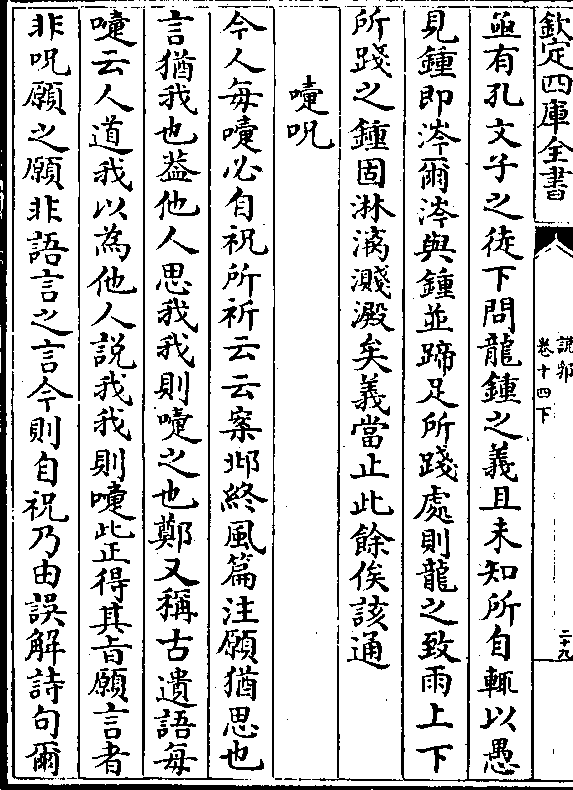 欽定四庫全書
說郛
卷十四下
二十九
亟有孔文子之徒下問龍鍾之義且未知所自輒以愚
見鍾即涔爾涔與鍾並蹄足所踐處則龍之致雨上下
所踐之鍾固淋漓濺澱矣義當止此餘俟該通
嚏呪
今人每嚏必自祝所祈云云案邶終風篇注願猶思也
言猶我也葢他人思我我則嚏之也鄭又稱古遺語每
嚏云人道我以為他人說我我則嚏此正得其旨願言者
非呪願之願非語言之言今則自祝乃由誤解詩句爾